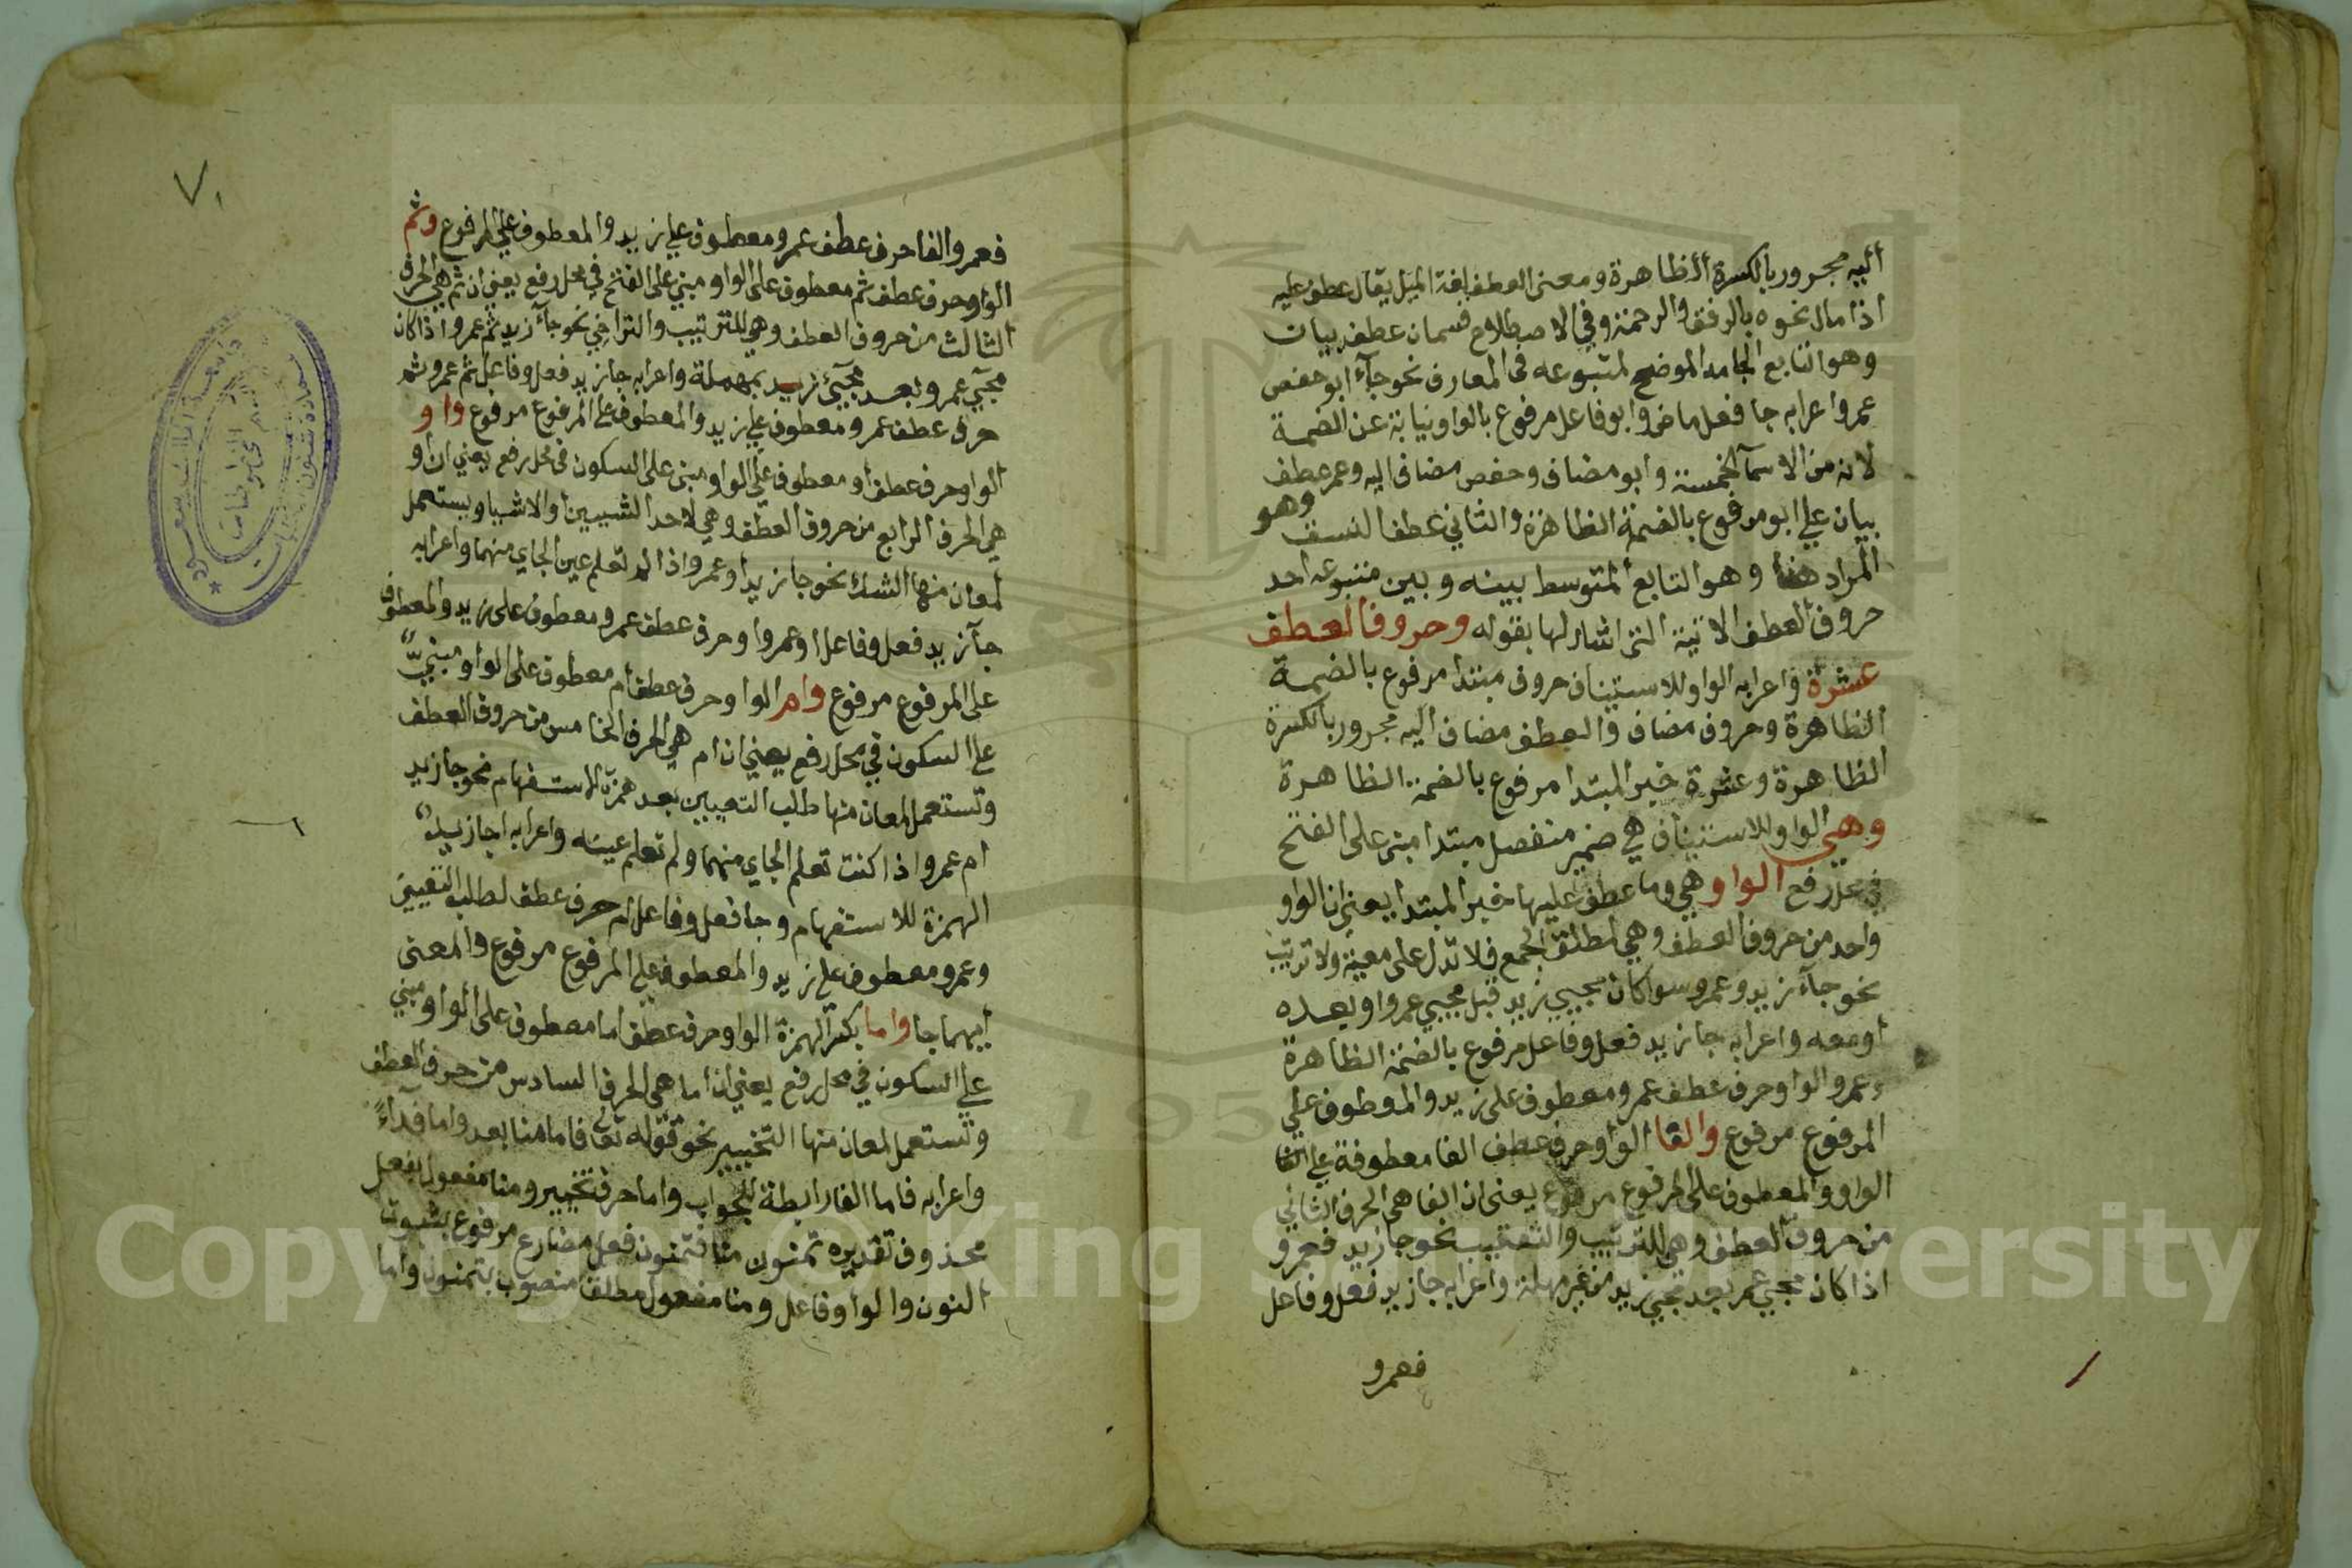 اليه مجرور بالكسرة الظاهرة ومعنى العطف لغة الميل يقال عطف عليه
اذا مال نحوه بالرفق والرحمة وفي الاصطلاح قسمان عطف بيان
وهو التابع الجامد الموضح لمتبوعه في المعارف نحو جآء ابو حفص
عمر واعرابه جا فعل ماض وابو فاعل مرفوع بالواو نيابة عن الضمة
لانه من الاسمآ الخمسة وابو مضاف وحفص مضاف اليه وعمر عطف
بيان على ابو مرفوع بالضمة الظاهرة والثاني عطف النسق وهو
المراد هنا وهو التابع المتوسط بينه وبين متبوعه احد
حروف العطف الاتية التي اشار لها بقوله وحروف العطف
عشرة واعرابه الواو للاستيناف حروف مبتدا مرفوع بالضمة
الظاهرة وحروف مضاف والعطف مضاف اليه مجرور بالكسرة
الظاهرة وعشرة خبر المبتدا مرفوع بالضمة الظاهرة
وهي الواو للاستيناف هي ضمير منفصل مبتدا مبني على الفتح
في محل رفع الواو وهي وما عطف عليها خبر المبتدا يعني ان الواو
واحد من حروف العطف وهي لمطلق الجمع فلا تدل على معية ولا ترتيب
نحو جآء زيد وعمرو سوا كان مجيي زيد قبل مجيي عمرو او بعده
او معه واعرابه جا زيد فعل وفاعل مرفوع بالضمة الظاهرة
وعمرو الواو حرف عطف عمرو معطوف على زيد والمعطوف على
المرفوع مرفوع والفا الواو حرف عطف الفا معطوفة على
الواو والمعطوف على المرفوع مرفوع يعني ان الفا هي الحرف الثاني
من حروف العطف وهي للترتيب والتعقيب نحو جا زيد فعمرو
اذا كان مجيي عمر بعد مجيي زيد من غير مهلة واعرابه جا زيد فعل وفاعل
فعمرو
٧٠
فعمرو الفا حرف عطف عمرو معطوف على زيد والمعطوف على المرفوع وثم
الواو حرف عطف ثم معطوف على الواو مبني على الفتح في محل رفع يعني ان ثم هي الحرف
الثالث من حروف العطف وهي للترتيب والتراخي نحو جآء زيد ثم عمرو اذا كان
مجيئ عمرو بعد مجيئ زيد بمهملة واعرابه جا زيد فعل وفاعل ثم عمرو ثم
حرف عطف عمرو معطوف على زيد والمعطوف على المرفوع مرفوع واو
الواو حرف عطف او معطوف على الواو مبني على السكون في محل رفع يعني ان او
هي الحرف الرابع من حروف العطف وهي لاحد الشيين او الاشيا ويستعمل
لمعان منها الشك نحو جا زيد او عمرو اذا لم تعلم عين الجاي منهما واعرابه
جآ زيد فعل وفاعل او عمرو او حرف عطف عمرو معطوف على زيد والمعطوف
على المرفوع مرفوع وام الواو حرف عطف ام معطوف على الواو مبني
على السكون في محل رفع يعني ان ام هي الحرف الخامس من حروف العطف
وتستعمل لمعان منها طلب التعيين بعد همزة الاستفهام نحو جا زيد
ام عمرو اذا كنت تعلم الجاي منهما ولم تعلم عينه واعرابه اجا زيد
الهمزة للاستفهام وجا فعل وفاعل ام حرف عطف لطلب التعيين
وعمرو معطوف على زيد والمعطوف على المرفوع مرفوع والمعنى
ايهما جا واما بكسر الهمزة الواو حرف عطف اما معطوف على الواو مبني
على السكون في محل رفع يعني ان اما هي الحرف السادس من حرف العطف
وتستعمل لمعان منها التخيير نحو قوله تعالى فاما منا بعد واما فدآءً
واعرابه فاما الفا رابطة للجواب واما حرف تخيير ومنا مفعول بفعل
محذوف تقديره تمنون منا فتمنون فعل مضارع مرفوع بثبوت
النون والواو فاعل ومنا مفعول مطلق منصوب بتمنون واما
Copyright © King Saud University
195